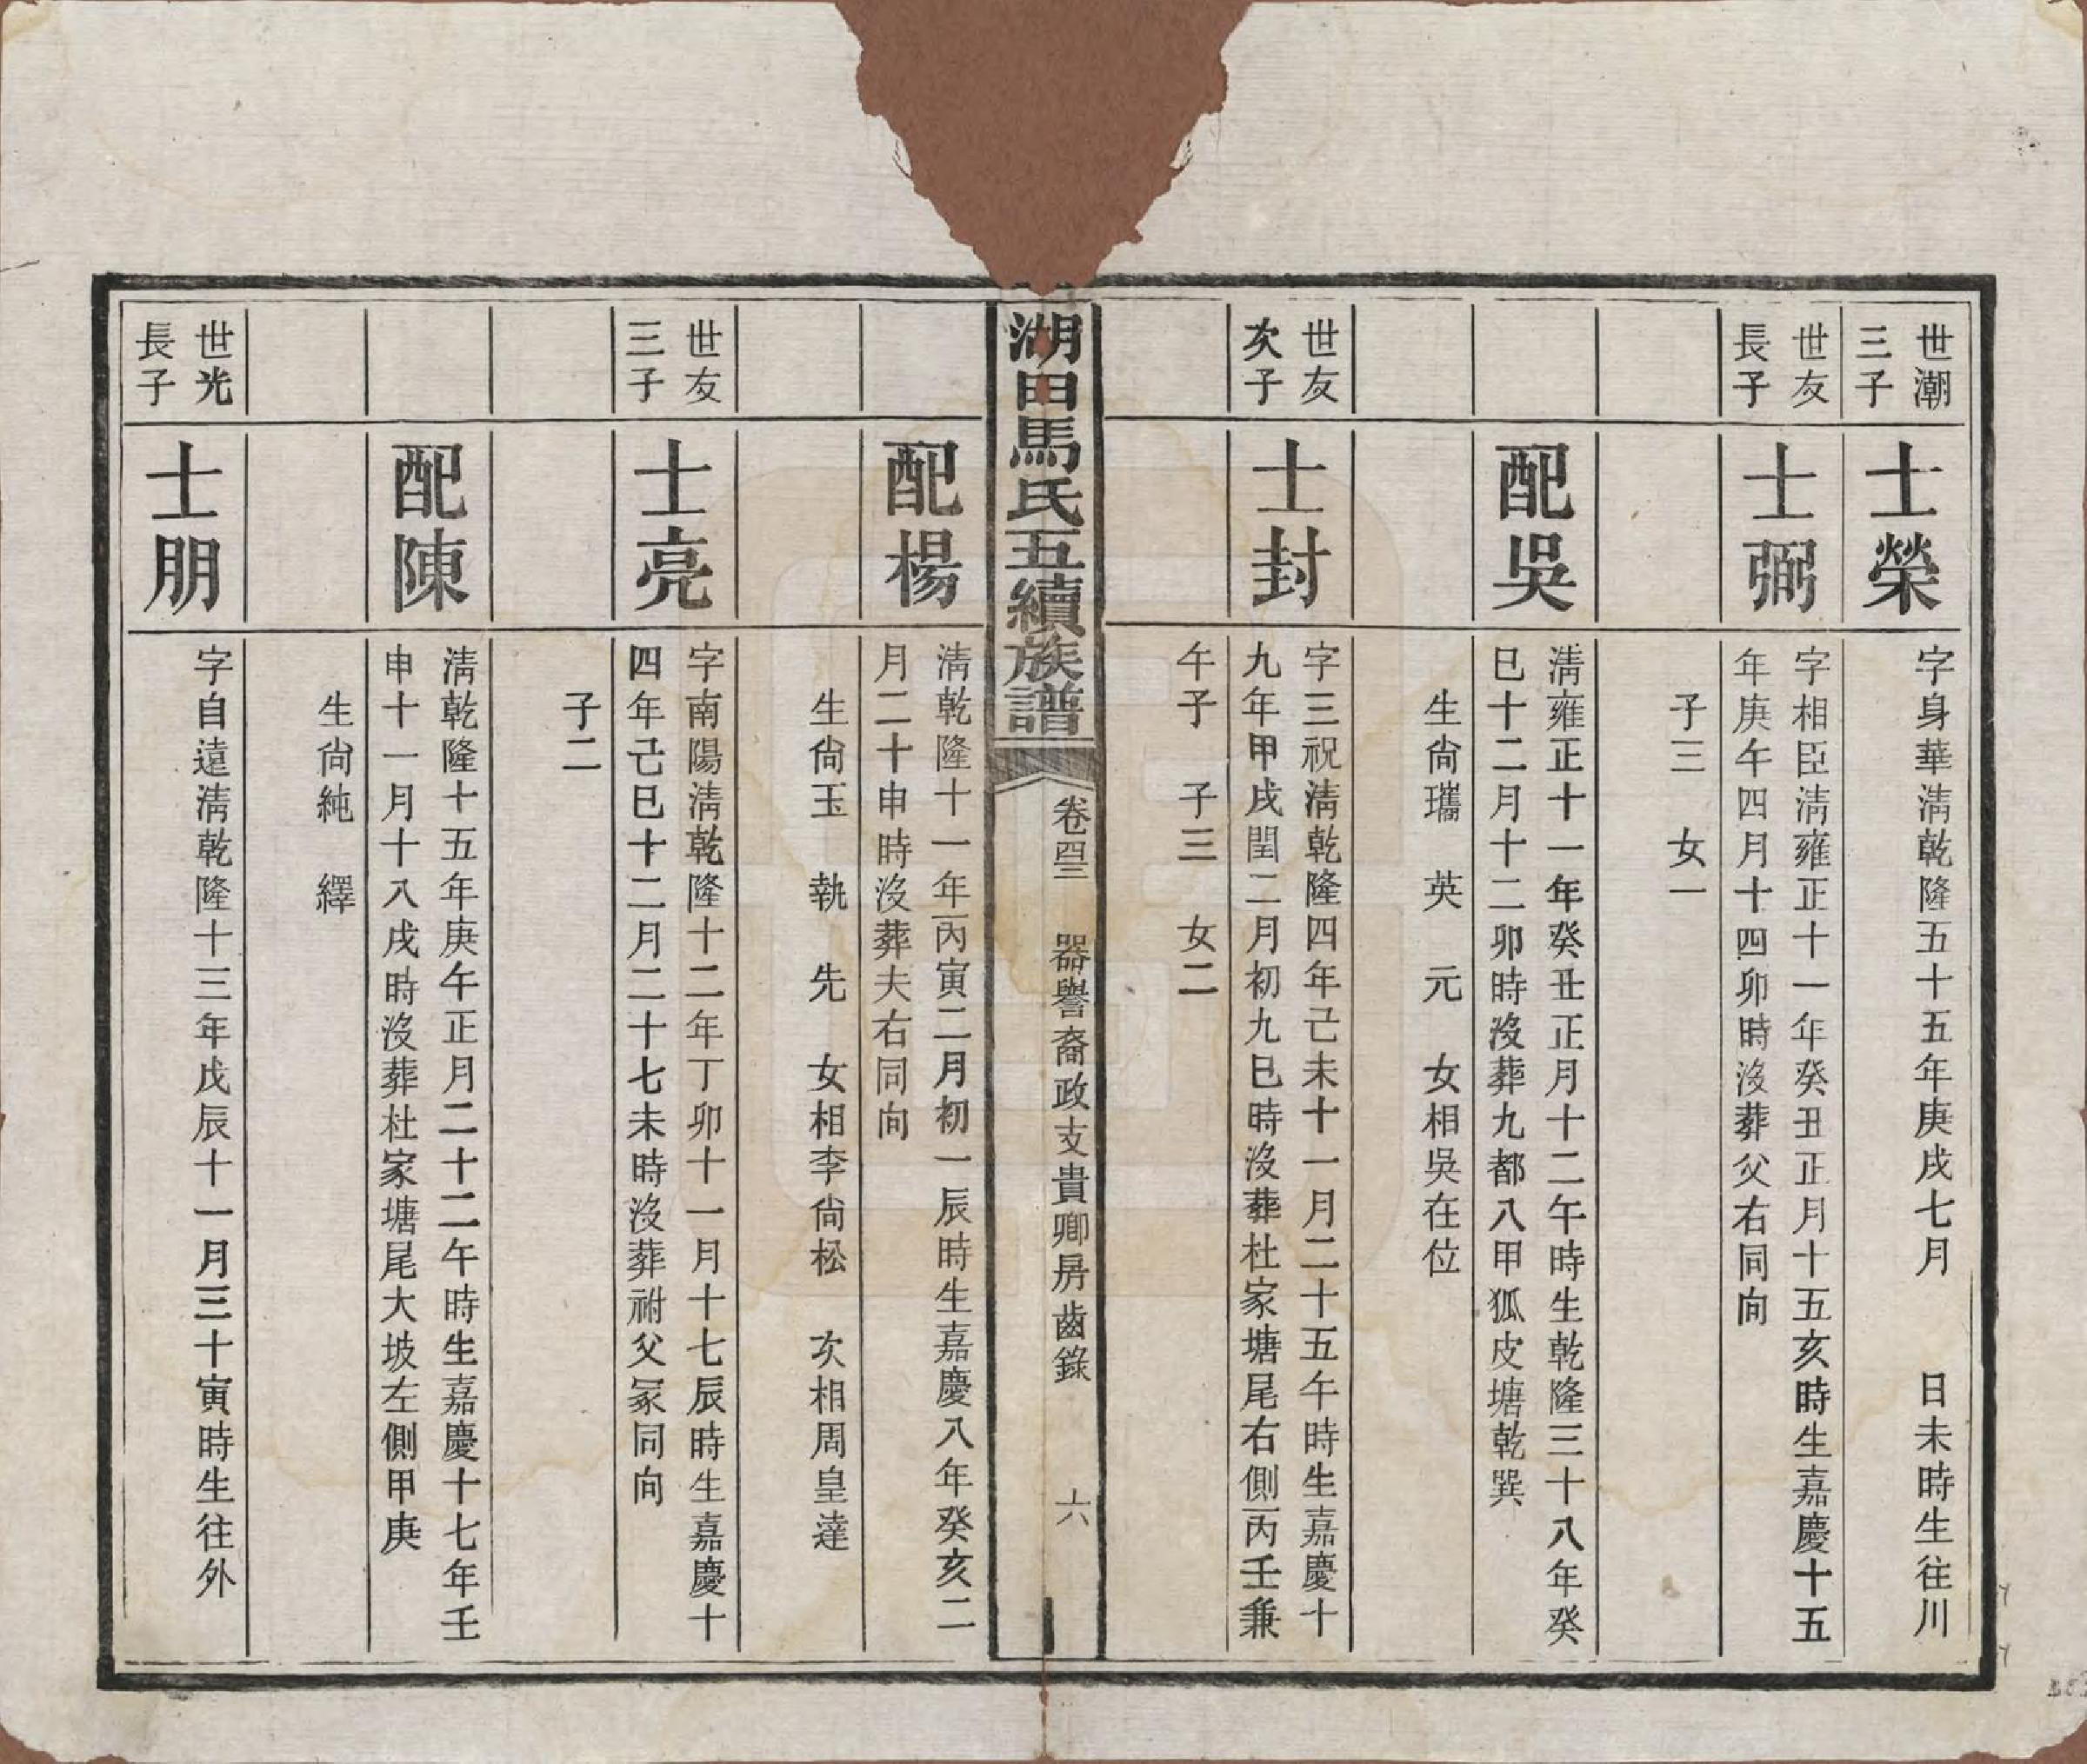 世潮
三子
士榮
字身華淸乾隆五十五年庚戌七月　日未時生往川
世友
長子
士弼
字相臣淸雍正十一年癸丑正月十五亥時生嘉慶十五
年庚午四月十四卯時沒葬父右同向
子三　女一
配吳
淸雍正十一年癸丑正月十二午時生乾隆三十八年癸
巳十二月十二卯時沒葬九都八甲狐皮塘乾巽
生尙瓗　英　元　女相吳在位
世友
次子
士封
字三祝淸乾隆四年己未十一月二十五午時生嘉慶十
九年甲戌閏二月初九巳時沒葬杜家塘尾右側丙壬兼
午子　子三　女二
湖田馬氏五續族譜
卷四三　器譽裔政支貴卿房齒錄　六
配楊
淸乾隆十一年丙寅二月初一辰時生嘉慶八年癸亥二
月二十申時沒葬夫右同向
生尙玉　執　先　女相李尙松　次相周皇達
世友
三子
士亮
字南陽淸乾隆十二年丁卯十一月十七辰時生嘉慶十
四年己巳十二月二十七未時沒葬祔父冢同向
子二
配陳
淸乾隆十五年庚午正月二十二午時生嘉慶十七年壬
申十一月十八戌時沒葬杜家塘尾大坡左側甲庚
生尙純　繹
世光
長子
士朋
字自遠淸乾隆十三年戊辰十一月三十寅時生往外